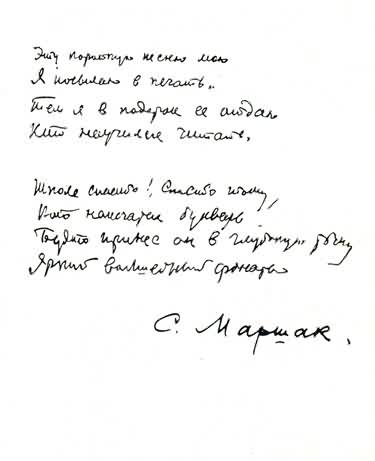 Эту короткую песню мою
Я посылаю в печать.
Тем я в подарок ее отдаю,
Кто научился читать.
Школе спасибо! Спасибо тому,
Кто напечатал букварь.
Будто принес он в глубокую тьму
Яркий волшебный фонарь.
С. Маршак.